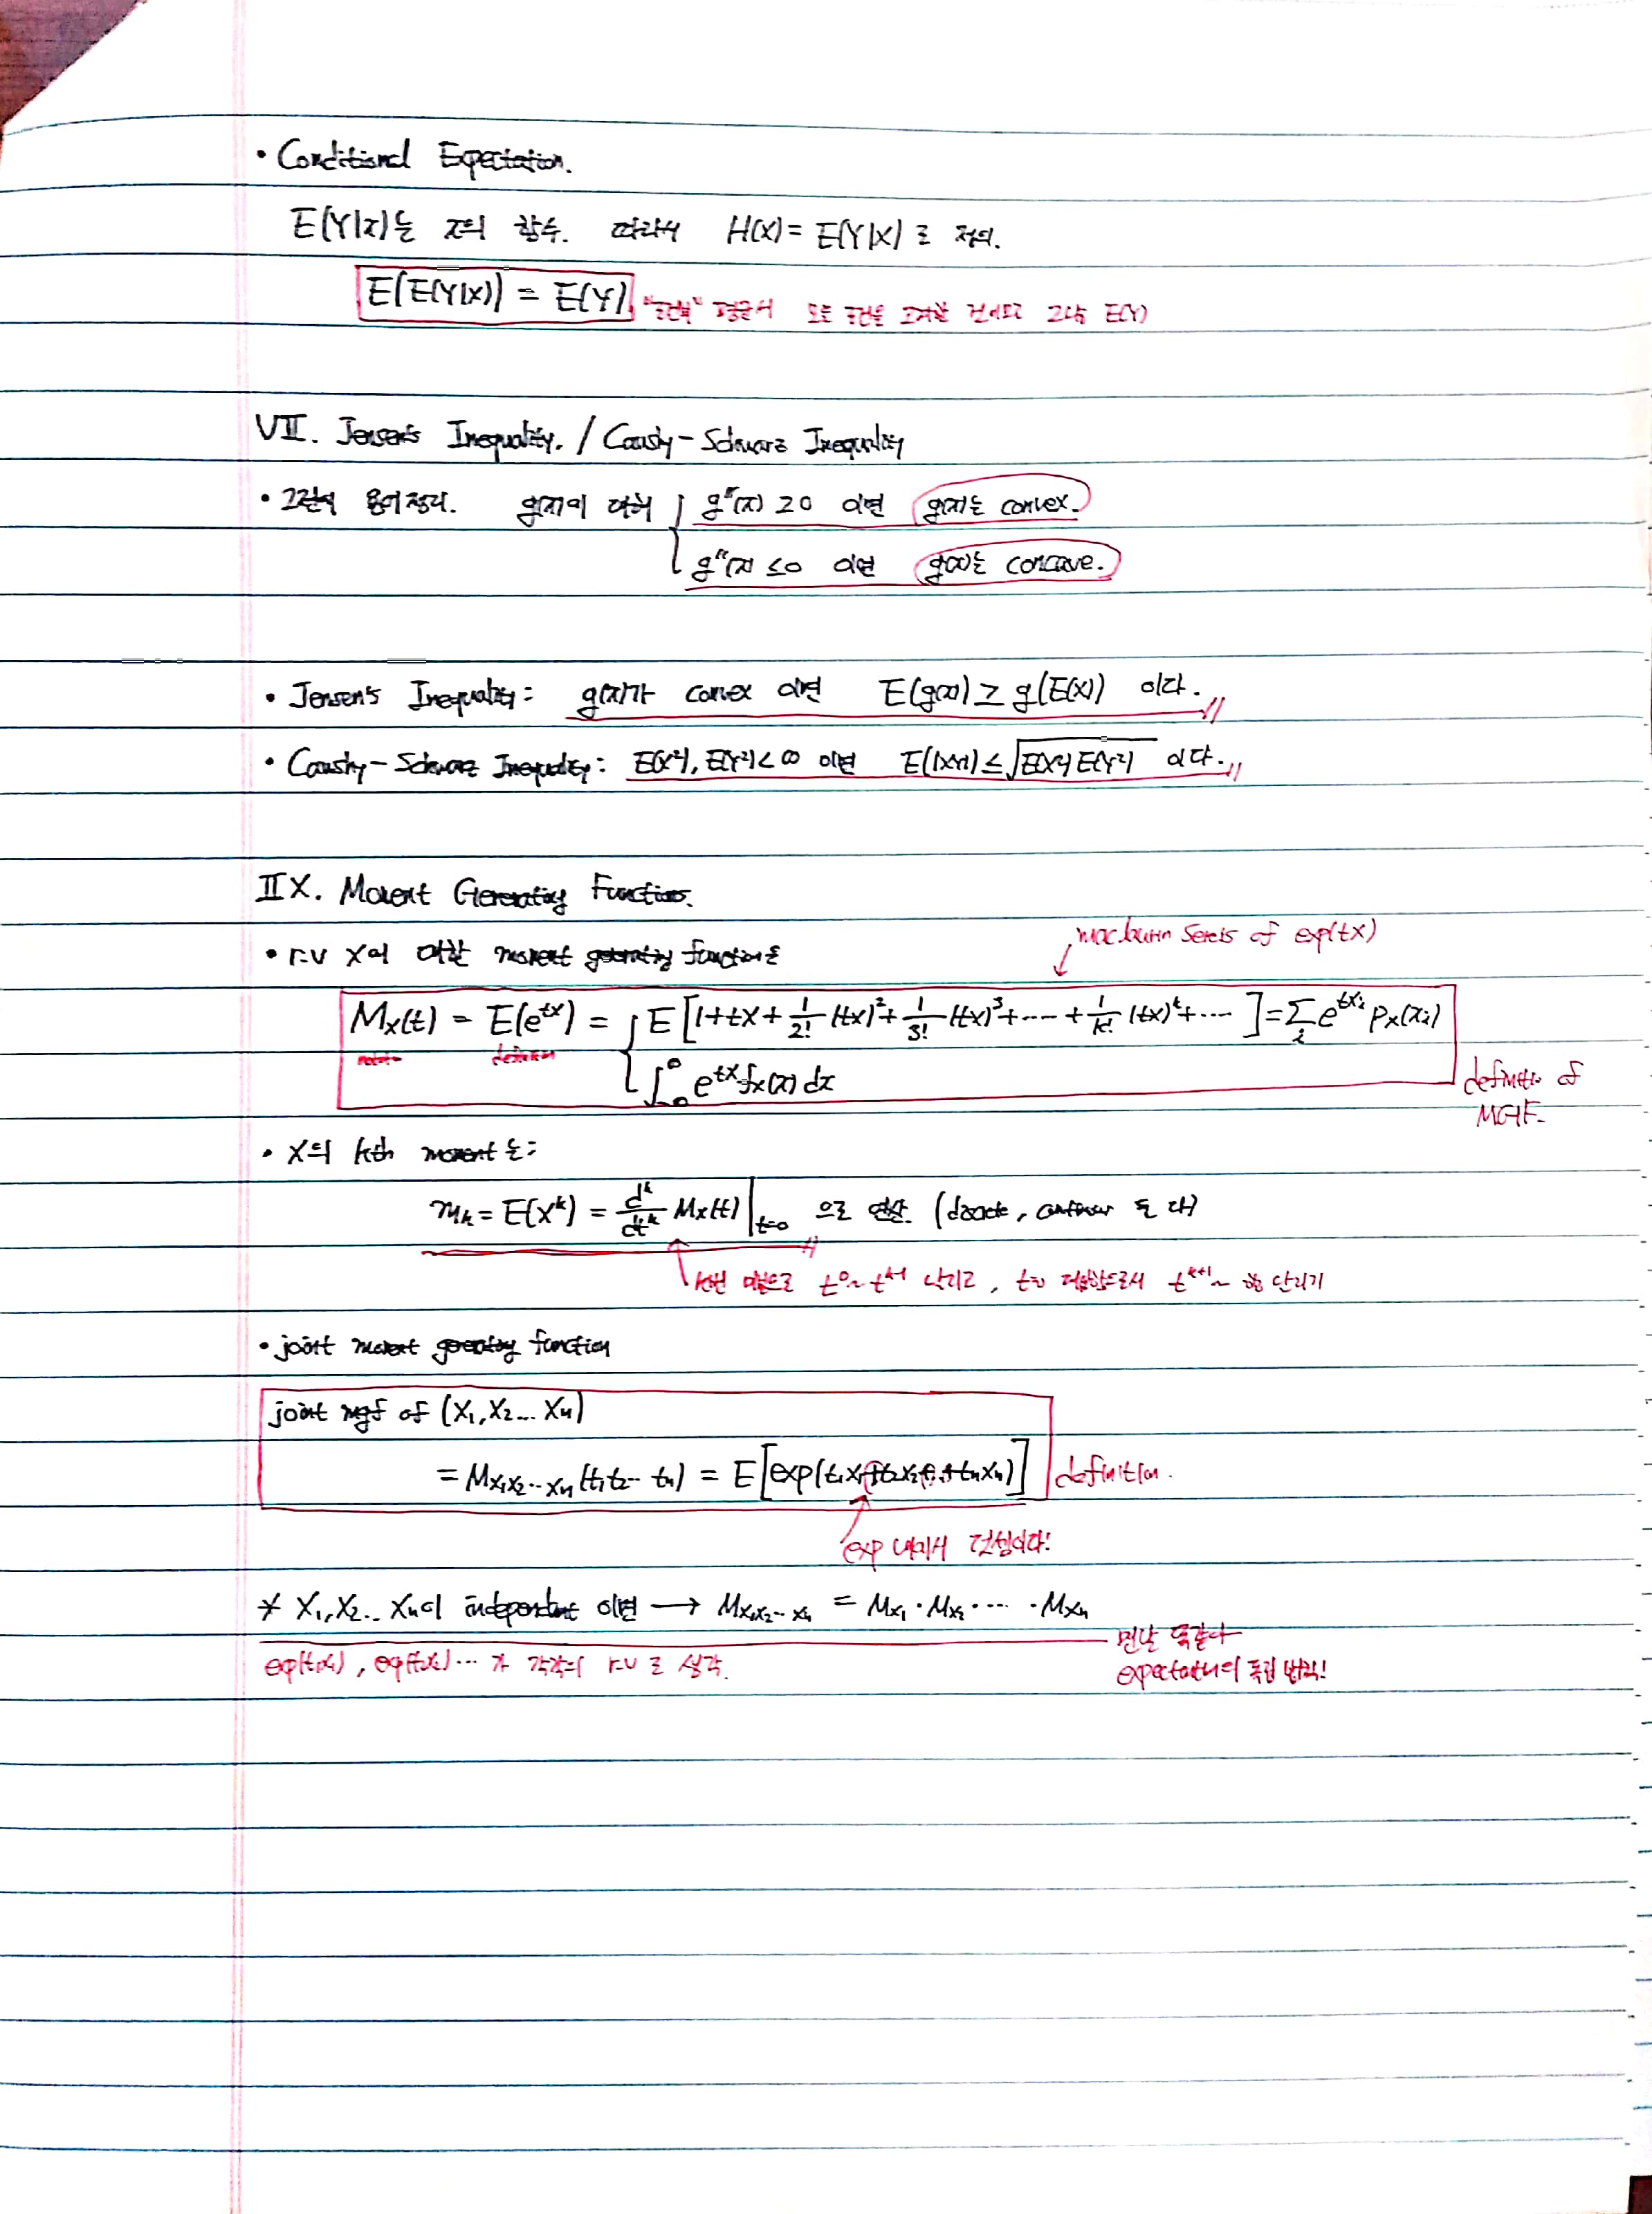 • Conditional Expectation.
E(Y|x)는 x의 함수. 따라서 H(X) = E(Y|X)로 정의.
E(E(Y|X)) = E(Y) "조건부" 평균에서 모든 조건을 고려한 것이므로 그냥 E(Y)
VII. Jensen's Inequality. / Cauchy-Schwarz Inequality
• 그전에 용어정리. g(x)에 대해 g''(x) ≥ 0 이면 g(x)는 convex.
g''(x) ≤ 0 이면 g(x)는 concave.
• Jensen's Inequality: g(x)가 convex 이면 E(g(x)) ≥ g(E(X)) 이다.
• Cauchy-Schwarz Inequality: E(X²), E(Y²) < ∞ 이면 E(|XY|) ≤ √E(X²)E(Y²) 이다.
IIX. Moment Generating Function.
maclaurin Series of exp(tX)
• r.v X에 대한 moment generating function은
M_X(t) = E(e^{tX}) = { E[1+tX+\frac{1}{2!}(tX)²+\frac{1}{3!}(tX)³+ ··· +\frac{1}{k!}(tX)^k+ ··· ] = Σ_i e^{tx_i} P_X(x_i)
notation definition
∫_{-∞}^{∞} e^{tx} f_X(x) dx
definition of
MGF.
• X의 kth moment는:
m_k = E(X^k) = \frac{d^k}{dt^k} M_X(t) |_{t=0} 으로 연산. (discrete, continuous 둘 다)
k번 미분으로 t^0 ~ t^{k-1} 날리고, t=0 대입함으로써 t^{k+1} ~ 항 날리기
• joint moment generating function
joint mgf of (X₁, X₂ ... X_n)
= M_{X₁X₂···X_n}(t₁t₂··· t_n) = E[exp(t₁X₁+t₂X₂+···+t_nX_n)] definition.
exp 내에서 덧셈이다!
* X₁, X₂ .. X_n이 independent 이면 → M_{X₁X₂···X_n} = M_{X₁} · M_{X₂} · ··· · M_{X_n}
맨날 똑같다
exp(t₁X₁), exp(t₂X₂) ··· 가 각각의 r.v로 생각.
expectation의 독립 법칙!